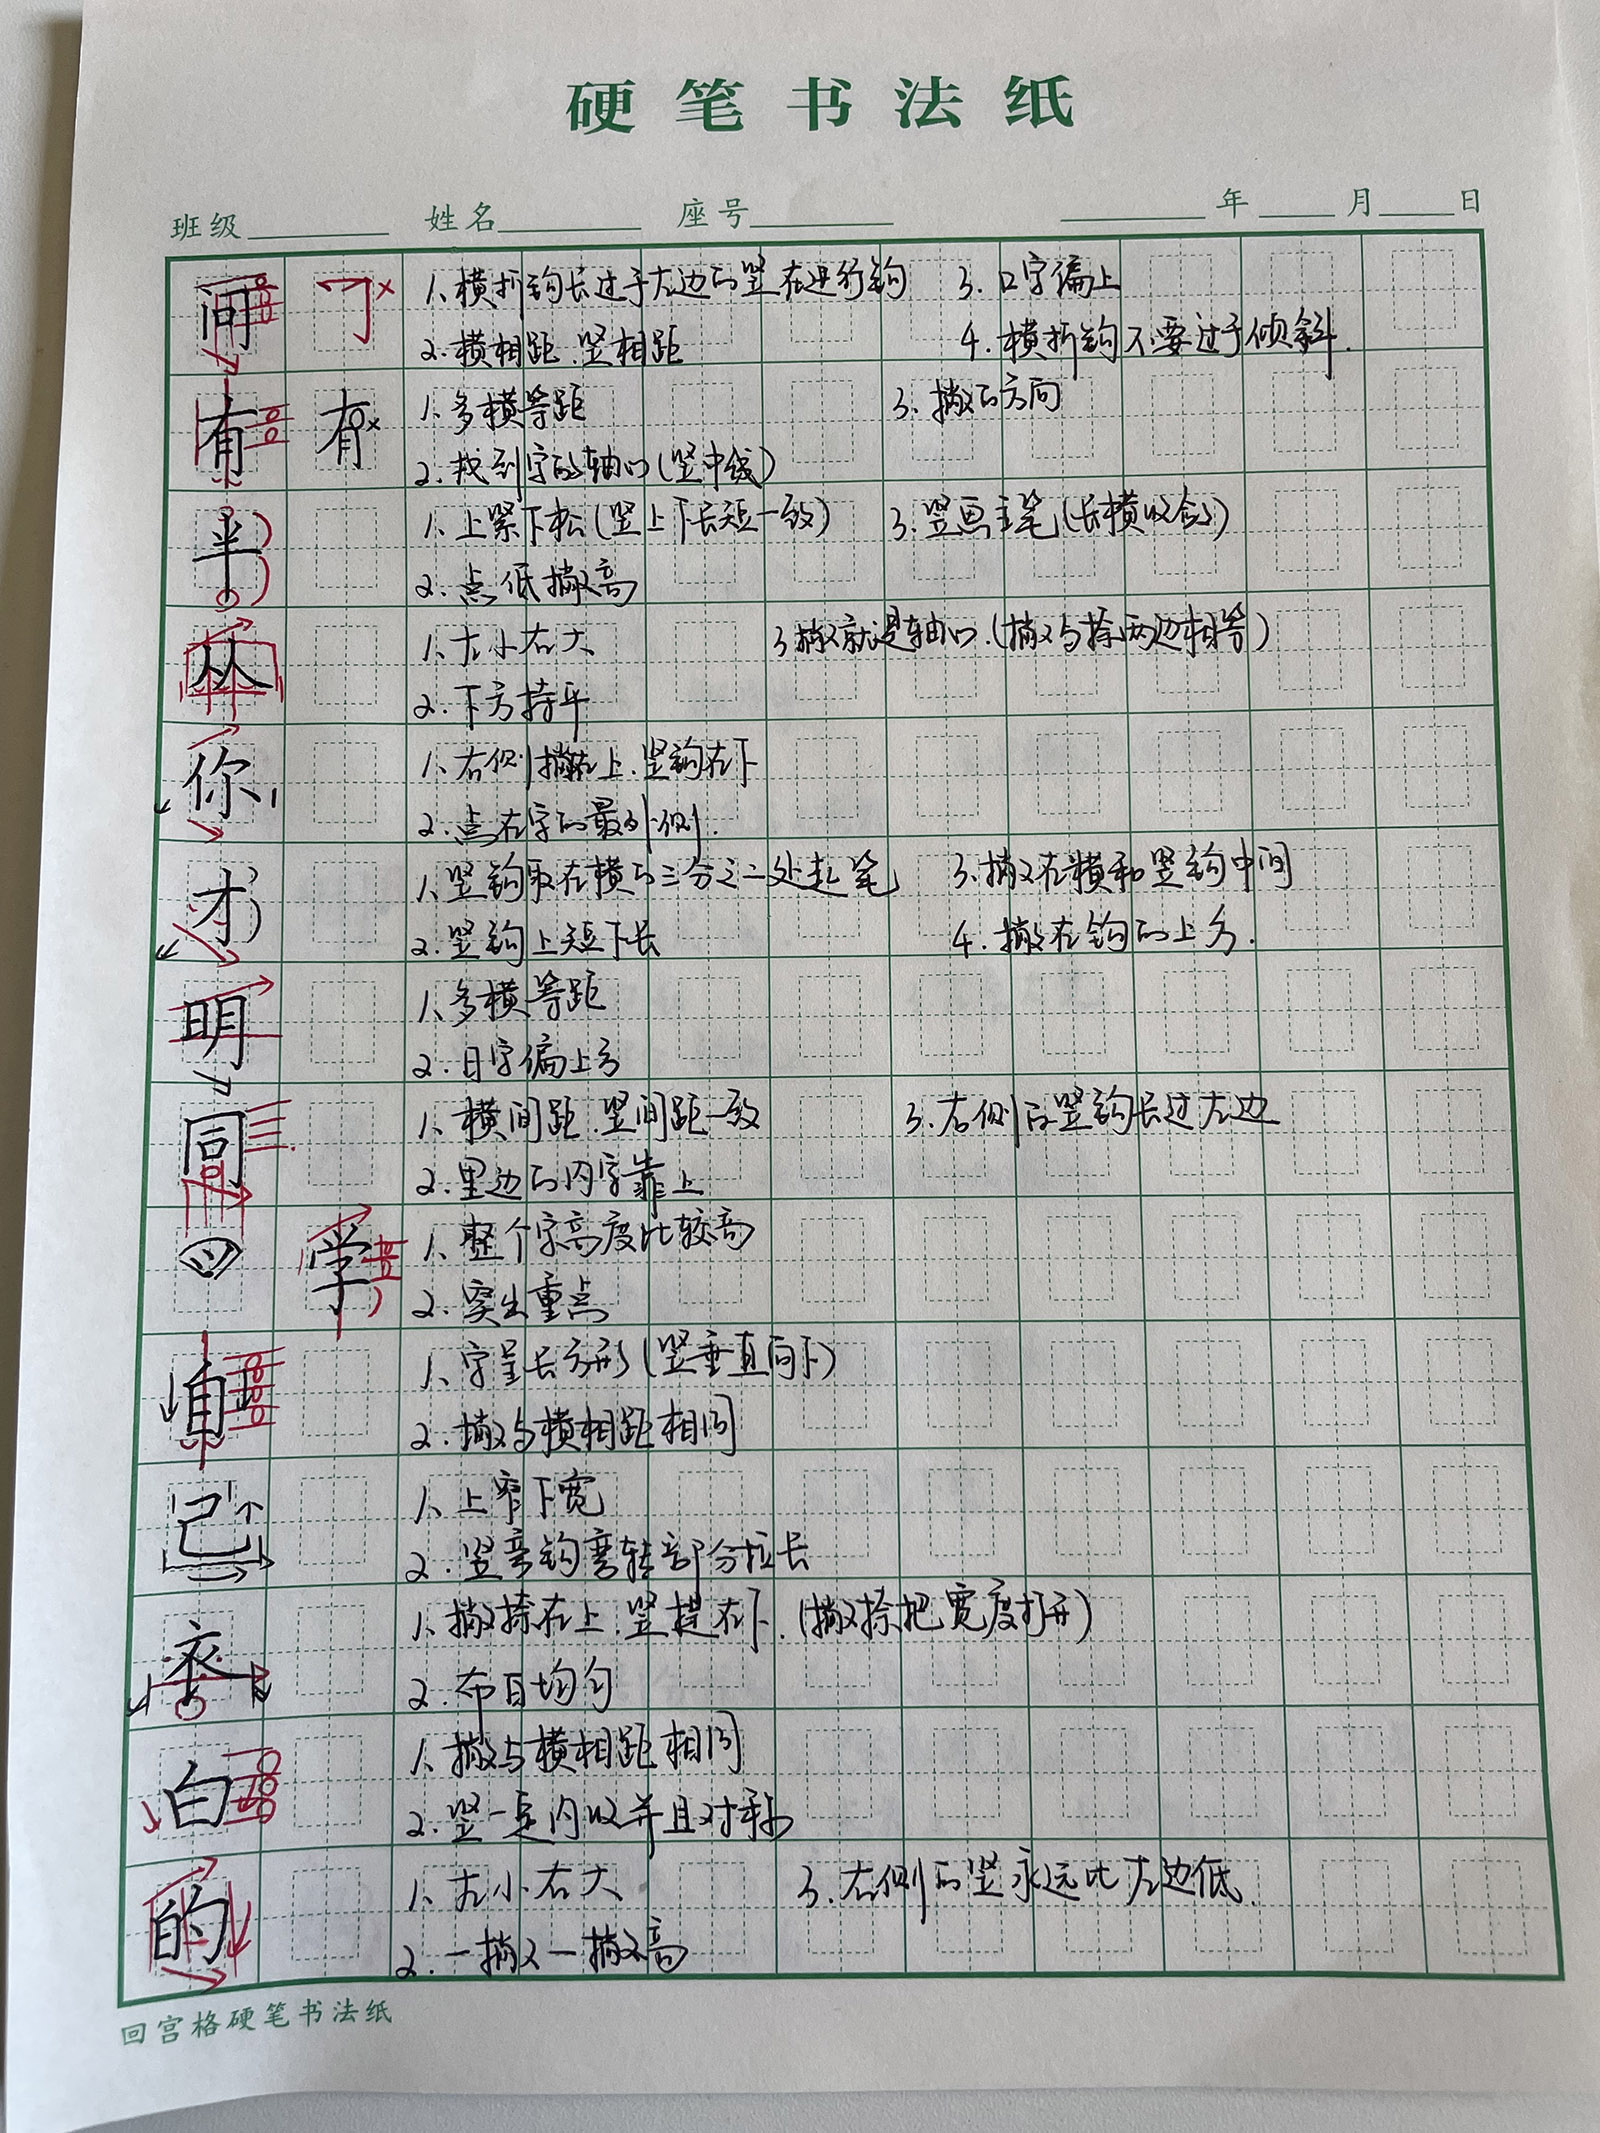 硬笔书法纸
班级 姓名 座号 年 月 日
问 1、横折钩长过于左边的竖在进行钩 3.口字偏上
2.横相距.竖相距 4.横折钩不要过于倾斜.
有 有 1、多横等距 3.撇的方向
2.找到字的轴心(竖中线)
半 1、上紧下松(竖上下长短一致) 3.竖画主笔(长横收敛)
2.点低撇高
从 1、左小右大 3撇就是轴心.(撇与捺两边相等)
2.下方持平
你 1、右侧撇在上.竖钩在下
2.点在字的最外侧.
才 1、竖钩取在横的三分之二处起笔 3.撇在横和竖钩中间
2.竖钩上短下长 4.撇在钩的上方.
明 1、多横等距
2.日字偏上方
同 1、横间距.竖间距一致 3.右侧的竖钩长过左边
2.里边的内字靠上
学 1、整个字高度比较高
2.突出重点
自 1、字呈长方形(竖垂直向下)
2.撇与横相距相同
己 1、上窄下宽
2.竖弯钩弯转部分拉长
1、撇捺在上.竖提在下.(撇捺把宽度打开)
2.布白均匀
白 1、撇与横相距相同
2.竖一定内收并且对称
的 1、左小右大 3.右侧的竖永远比左边低.
2.一撇一撇高
回宫格硬笔书法纸